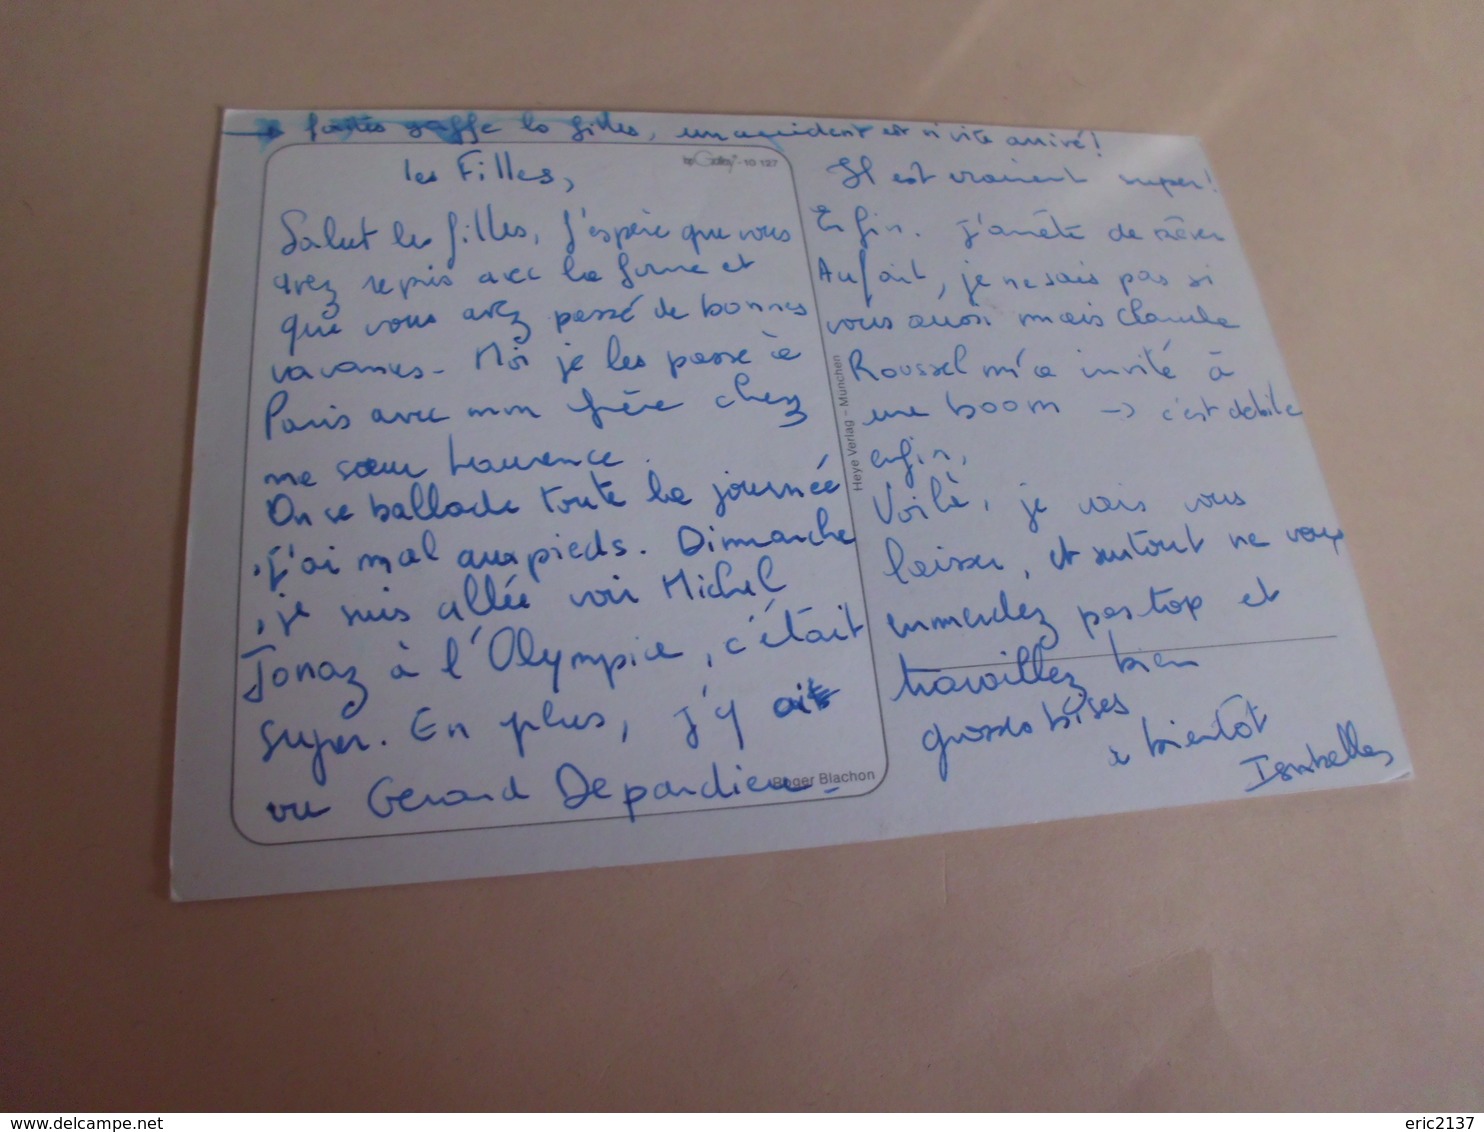 → faites gaffe les filles, un accident est si vite arrivé !
les Filles,
10 127
Salut les filles, j'espère que vous
avez repris avec la forme et
que vous avez passé de bonnes
vacances - Moi je les passe à
Paris avec mon frère chez
ma sœur Laurence.
On se ballade toute la journée
j'ai mal aux pieds. Dimanche
je suis allée voir Michel
Jonaz à l'Olympia, c'était
super. En plus, j'y ait
vu Gérard Depardieu -
Roger Blachon
Heye Verlag – München
Il est vraiment super !
Enfin. j'arrête de rêver
Au fait, je ne sais pas si
vous aussi mais Claude
Roussel m'a invité à
une boom → c'est debile
enfin,
Voilà, je vais vous
laisser, et surtout ne vous
emmerdez pas trop et
travaillez bien
grosses bises
à bientôt
Isabelle
delcampe.net
eric2137